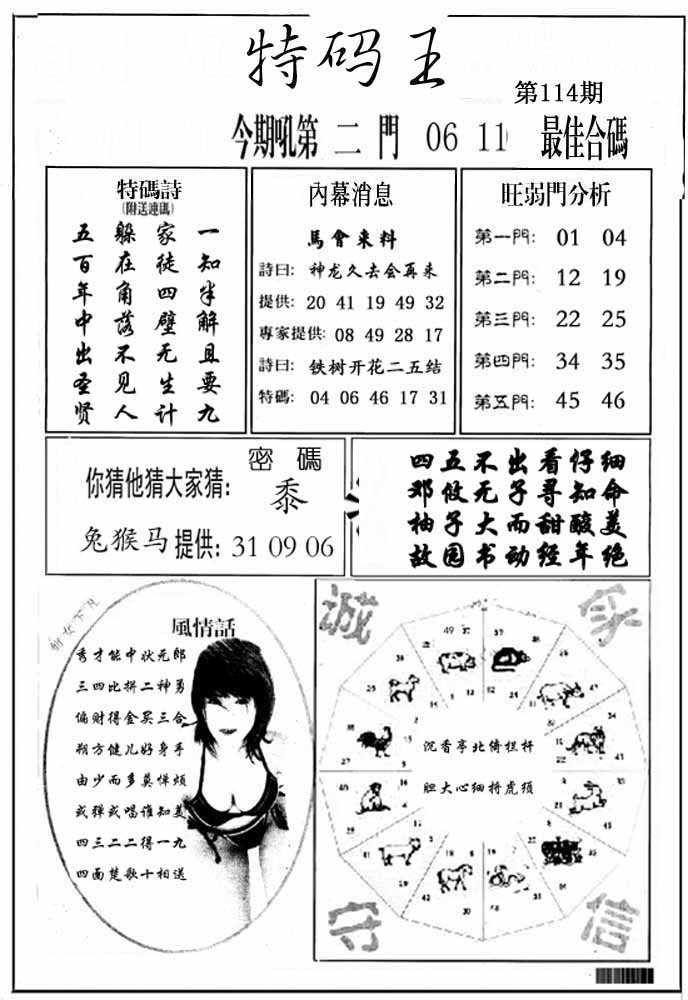 特码王
第114期
今期吼第 二 門 06 11 最佳合碼
特碼詩
(附送連碼)
一知半解且要九
家徒四壁无生计
躲在角落不见人
五百年中出圣贤
內幕消息
馬會来料
詩曰: 神龙久去会再来
提供: 20 41 19 49 32
專家提供: 08 49 28 17
詩曰: 铁树开花二五结
特碼: 04 06 46 17 31
旺弱門分析
第一門: 01 04
第二門: 12 19
第三門: 22 25
第四門: 34 35
第五門: 45 46
密 碼
你猜他猜大家猜: 黍
兔猴马 提供: 31 09 06
四五不出看仔细
邓攸无子寻知命
柚子大而甜酸美
故园书动经年绝
風情話
秀才能中状元郎
三四比拼二神勇
偏财得金买三合
朔方健儿好身手
由少而多莫惮烦
或弹或唱谁知美
四三二二得一九
四面楚歌十相送
诚
信
守
沉香亭北倚栏杆
胆大心细捋虎须